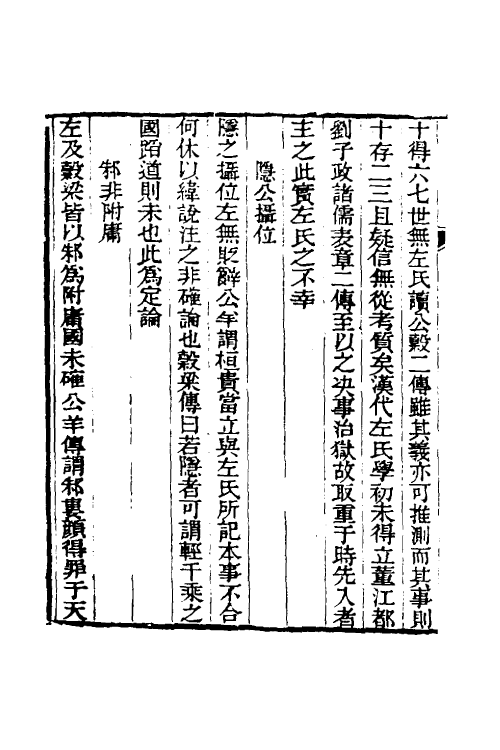 十得六七世無左氏讀公穀二傳雖其義亦可推測而其事則
十存二三且疑信無從考質矣漢代左氏學初未得立董江都
劉子政諸儒表章二傳至以之决事治獄故取重于時先入者
主之此實左氏之不幸
隱公攝位
隱之攝位左無貶辭公羊謂桓貴當立與左氏所記本事不合
何休以緯說注之非確論也穀梁傳曰若隱者可謂輕千乘之
國蹈道則未也此為定論
邾非附庸
左及穀梁皆以邾為附庸國未確公羊傳謂邾婁顏得罪于天